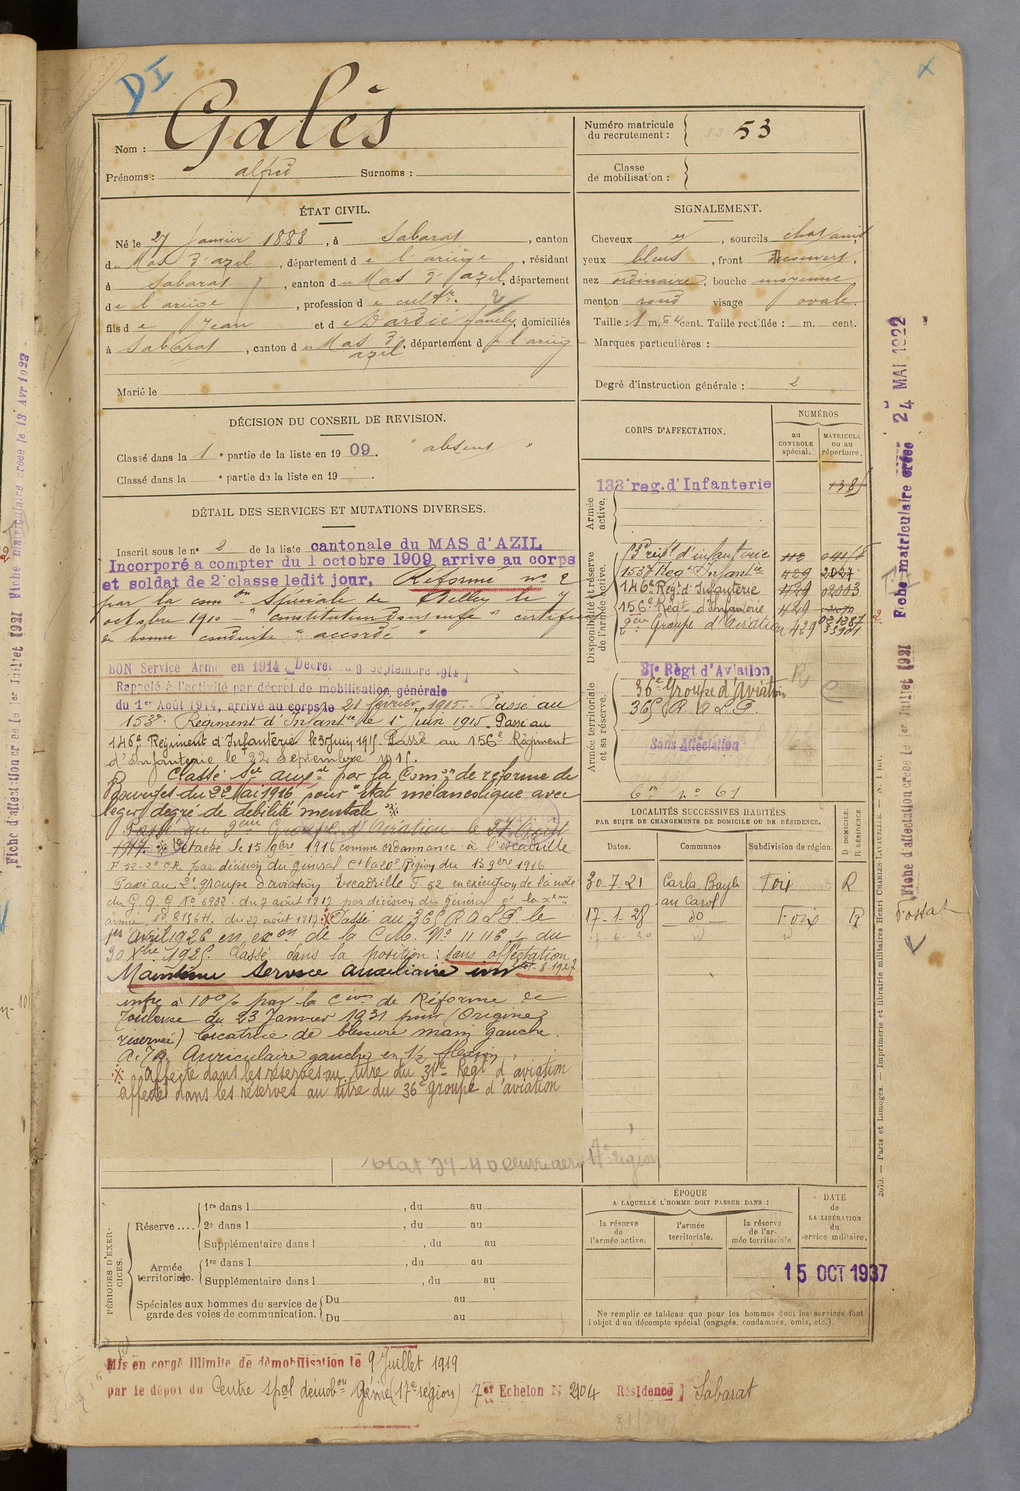 DI
Nom : Galès
Prénoms : alfred Surnoms :
Numéro matricule du recrutement : 53
Classe de mobilisation :
ÉTAT CIVIL.
Né le 27 Janvier 1888, à Sabarat, canton
du Mas d'azil, département de l'ariège, résidant
à Sabarat, canton du Mas d'azil, département
de l'ariège, profession de cultr.
fils de Jean et de Dardié, domiciliés
à Sabarat, canton du Mas d'azil, département de l'ariège
Marié le
SIGNALEMENT.
Cheveux et, sourcils chatains
yeux bleus, front découvert,
nez ordinaire, bouche moyenne
menton rond visage ovale.
Taille : 1 m. 64 cent. Taille rectifiée : m. cent.
Marques particulières :
Degré d'instruction générale : 2
DÉCISION DU CONSEIL DE REVISION.
Classé dans la 1 e partie de la liste en 1909. "absent"
Classé dans la e partie de la liste en 19
DÉTAIL DES SERVICES ET MUTATIONS DIVERSES.
Inscrit sous le n° 2 de la liste cantonale du MAS d'AZIL
Incorporé a compter du 1 octobre 1909 arrive au corps
et soldat de 2e classe ledit jour. Réformé n° 2
par la comon Spéciale de Belley le 7
octobre 1910 "constitution
bonne conduite "accordé"
BON Service Armé en 1914 Décret du 9 septembre 1914
Rappelé à l'activité par décret de mobilisation générale
du 1er Août 1914, arrivé au corps le 21 février 1915. Passé au
153e Régiment d'Infantie le 1er Juin 1915. Passé au
146e Régiment d'Infanterie le 3 Juin 1915. Passé au 156e Régiment
d'Infanterie le 22 Septembre 1915.
Classé Sce auxre par la Comon de réforme de
Bourges du 22 Mai 1916 pour "état mélancolique avec
léger degré de débilité mentale"
Passé au 2ème Groupe d'Aviation le
Détaché le 15 9bre 1916 comme ordonnance à l'escadrille
par décision du général Ct la 20e Région du 13 9bre 1916
Passé au 2e groupe d'aviation Escadrille F 52 en exécution de la note
du G.Q.G. N° 6932 du 7 août 1917 par décision du général
armée n° 8136H. du 27 août 1917. Classé au 36e R.A.L.P. le
1er avril 1926 en exon de la C.M. N° 11116 du
30 Xbre 1925. Classé dans la position : sans affectation
Maintenu Service Auxiliaire inv. 8.1927
infre à 10% par la de Réforme de
Toulouse du 23 Janvier 1931 pour (Origine
réservée) Cicatrice de blessure main gauche.
Auriculaire gauche en 1/2 flexion.
Affecté dans les réserves au titre du 31e Regt d'aviation
affecté dans les réserves au titre du 36e groupe d'aviation
CORPS D'AFFECTATION.
NUMÉROS
au CONTROLE spécial.
MATRICULE ou au répertoire.
Armée active.
133e reg. d'Infanterie 1385
Disponibilité et réserve de l'armée active.
153e Reg t d'Infantie 429
146e Rég t d'Infanterie 429 02003
156e Régt d'Infanterie 429
2ème Groupe d'Aviation 429
Armée territoriale et sa réserve.
31e Règt d'Aviation
36e Groupe d'Aviation
36e R A L P.
Sans Affectation
LOCALITÉS SUCCESSIVES HABITÉES
PAR SUITE DE CHANGEMENTS DE DOMICILE OU DE RÉSIDENCE.
Dates. Communes Subdivision de région. D DOMICILE. R RÉSIDENCE.
30-7.21 Carla Bayle Foix R
17-1-28 do Foix R Fossat
PÉRIODES D'EXERCICES.
Réserve .... 1re dans l , du au
2e dans l , du au
Supplémentaire dans l , du au
Armée territoriale. 1re dans l , du au
Supplémentaire dans l , du au
Spéciales aux hommes du service de garde des voies de communication. Du au
Du au
ÉPOQUE
A LAQUELLE L'HOMME DOIT PASSER DANS :
la réserve de l'armée active.
l'armée territoriale.
la réserve de l'armée territoriale
DATE de LA LIBÉRATION du service militaire.
15 OCT 1937
Ne remplir ce tableau que pour les hommes dont les services font l'objet d'un décompte spécial (engagés, condamnés, omis, etc.).
Mis en congé illimité de démobilisation le 9 Juillet 1919
par le dépôt du Centre spal démobon Génie (17e région) 7er Echelon N 2404 Résidence Sabarat
Fiche matriculaire créée 24 MAI 1922
Fiche d'affectation créée le 1er Juillet 1921
2613. — Paris et Limoges. — Imprimerie et librairie militaires Henri CHARLES-LAVAUZELLE.
Fiche d'affectation créée le 1er Juillet 1921 Fiche matriculaire créée le 13 Avr 1922